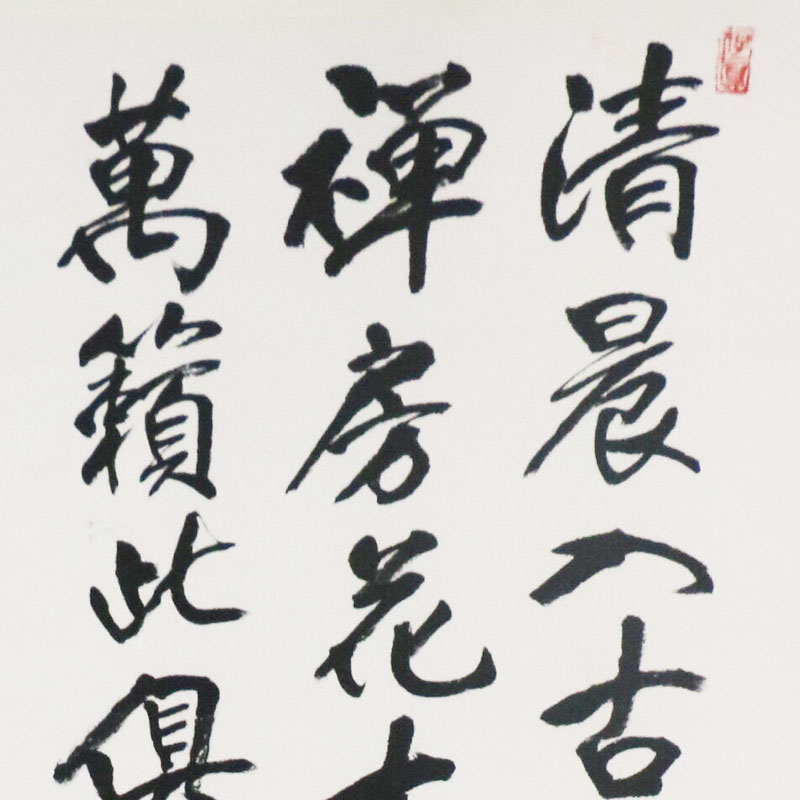 清晨入古
禪房花木
萬籟此俱